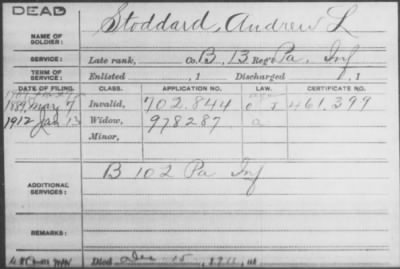 DEAD
NAME OF SOLDIER: Stoddard, Andrew L
SERVICE: Late rank, Co. B, 13 Reg't Pa. Inf
TERM OF SERVICE: Enlisted , 1 Discharged , 1
DATE OF FILING. CLASS. APPLICATION NO. LAW. CERTIFICATE NO.
1889 May 7 Invalid, 702.844 461.399
1912 Jan 13 Widow, 978287 a
Minor,
ADDITIONAL SERVICES: B 102 Pa Inf
REMARKS:
Died Dec 15, 1911, at